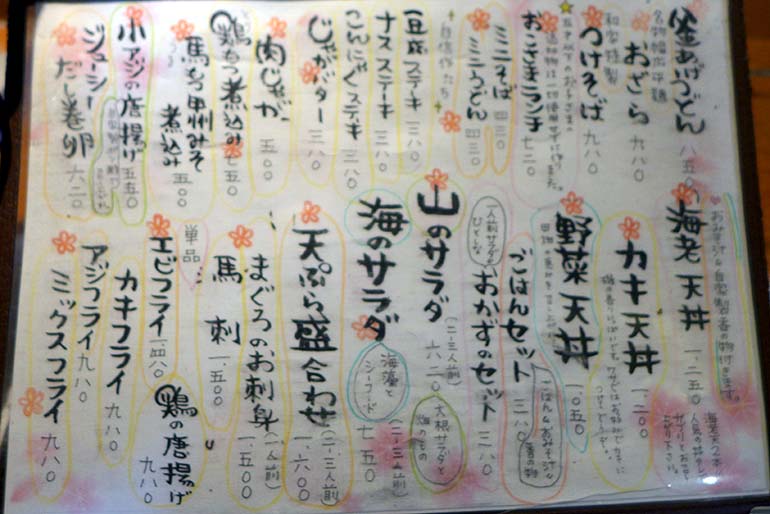 釜あげうどん 八五〇
おざら 九八〇
つけそば 九八〇
おこさまランチ 七二〇
ミニそば 四三〇
ミニうどん 四三〇
自信作たち
豆腐ステーキ 三八〇
ナスステーキ 三八〇
こんにゃくステーキ 三八〇
じゃがバター 三八〇
肉じゃが 五〇〇
鶏もつ煮込み 七五〇
馬もつ甲州みそ煮込み 五五〇
小アジの唐揚げ 五五〇
ジューシーだし巻卵 六二〇
おみそ汁と自家製香の物付きます。
海老天丼 一、二五〇
カキ天丼 一、二〇〇
野菜天丼 一、〇五〇
ごはんセット 三八〇
ごはん&おみそ汁&香の物
おかずのセット 三八〇
山のサラダ (二~三人前) 六二〇
大根サラダと畑のもの
海のサラダ (二~三人前) 七五〇
海藻とシーフード
天ぷら盛合わせ (二~三人前) 一、六〇〇
まぐろのお刺身 (一人前) 一、五〇〇
馬刺 一、五〇〇
単品
鶏の唐揚げ 九八〇
エビフライ 一、四八〇
カキフライ 九八〇
アジフライ 九八〇
ミックスフライ 九八〇